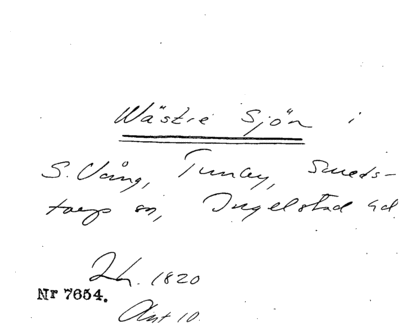 Wästre Sjön i
S. Vång, Tunby, Smeds-
torp sn, Ingelstad hd
Lh. 1820
Nr 7654.
Akt 10.